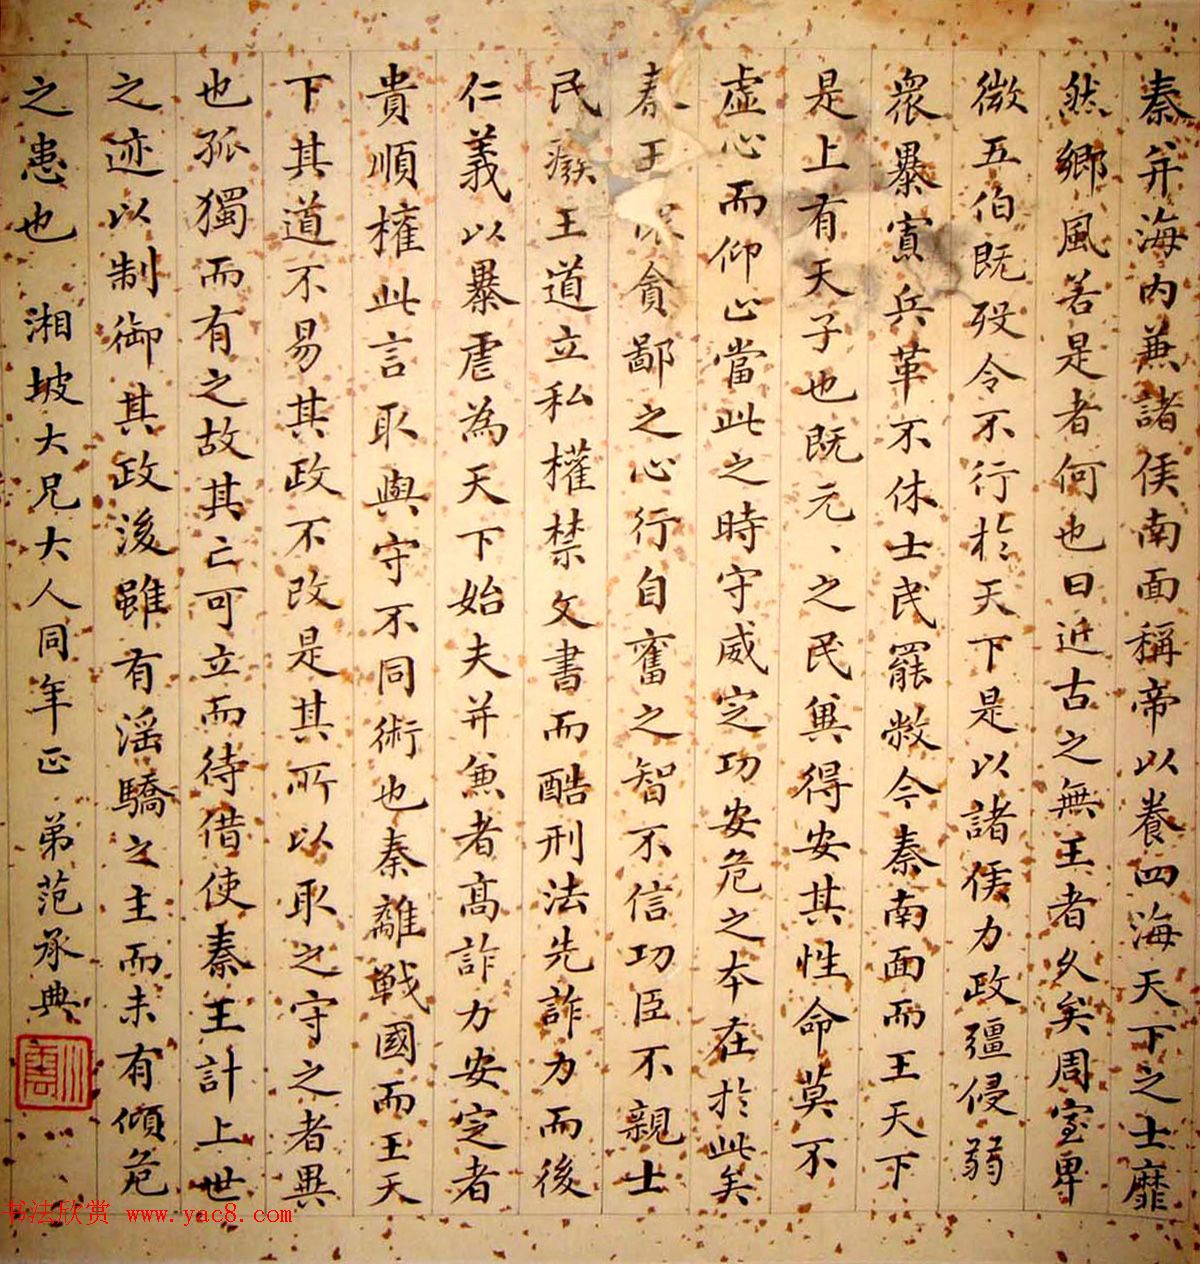 秦并海内兼諸侯南面稱帝以養四海天下之士靡
然鄉風若是者何也曰近古之無王者久矣周室卑
微五伯既歿令不行於天下是以諸侯力政彊侵弱
衆暴寡兵革不休士民罷敝今秦南面而王天下
是上有天子也既元、之民冀得安其性命莫不
虛心而仰止當此之時守威定功安危之本在於此矣
秦王懷貪鄙之心行自奮之智不信功臣不親士
民廢王道立私權禁文書而酷刑法先詐力而後
仁義以暴虐為天下始夫并兼者高詐力安定者
貴順權此言取與守不同術也秦離戰國而王天
下其道不易其政不改是其所以取之守之者異
也孤獨而有之故其亡可立而待借使秦王計上世
之迹以制御其政後雖有淫驕之主而未有傾危
之患也 湘坡大兄大人同年正 弟范承典
书法欣赏 www.yac8.com